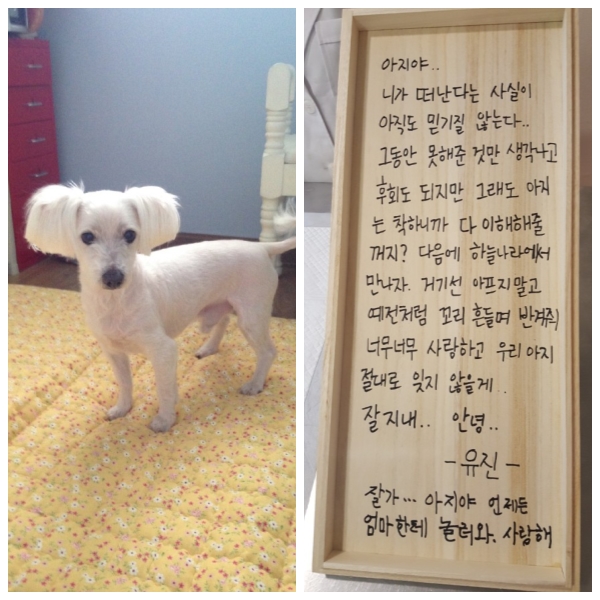 아지야..
니가 떠난다는 사실이
아직도 믿기질 않는다..
그동안 못해준 것만 생각나고
후회도 되지만 그래도 아지
는 착하니까 다 이해해줄
꺼지? 다음에 하늘나라에서
만나자. 거기선 아프지말고
예전처럼 꼬리 흔들며 반겨줘
너무너무 사랑하고 우리 아지
절대로 잊지 않을게..
잘지내.. 안녕..
- 유진 -
잘가... 아지야 언제든
엄마한테 놀러와. 사랑해